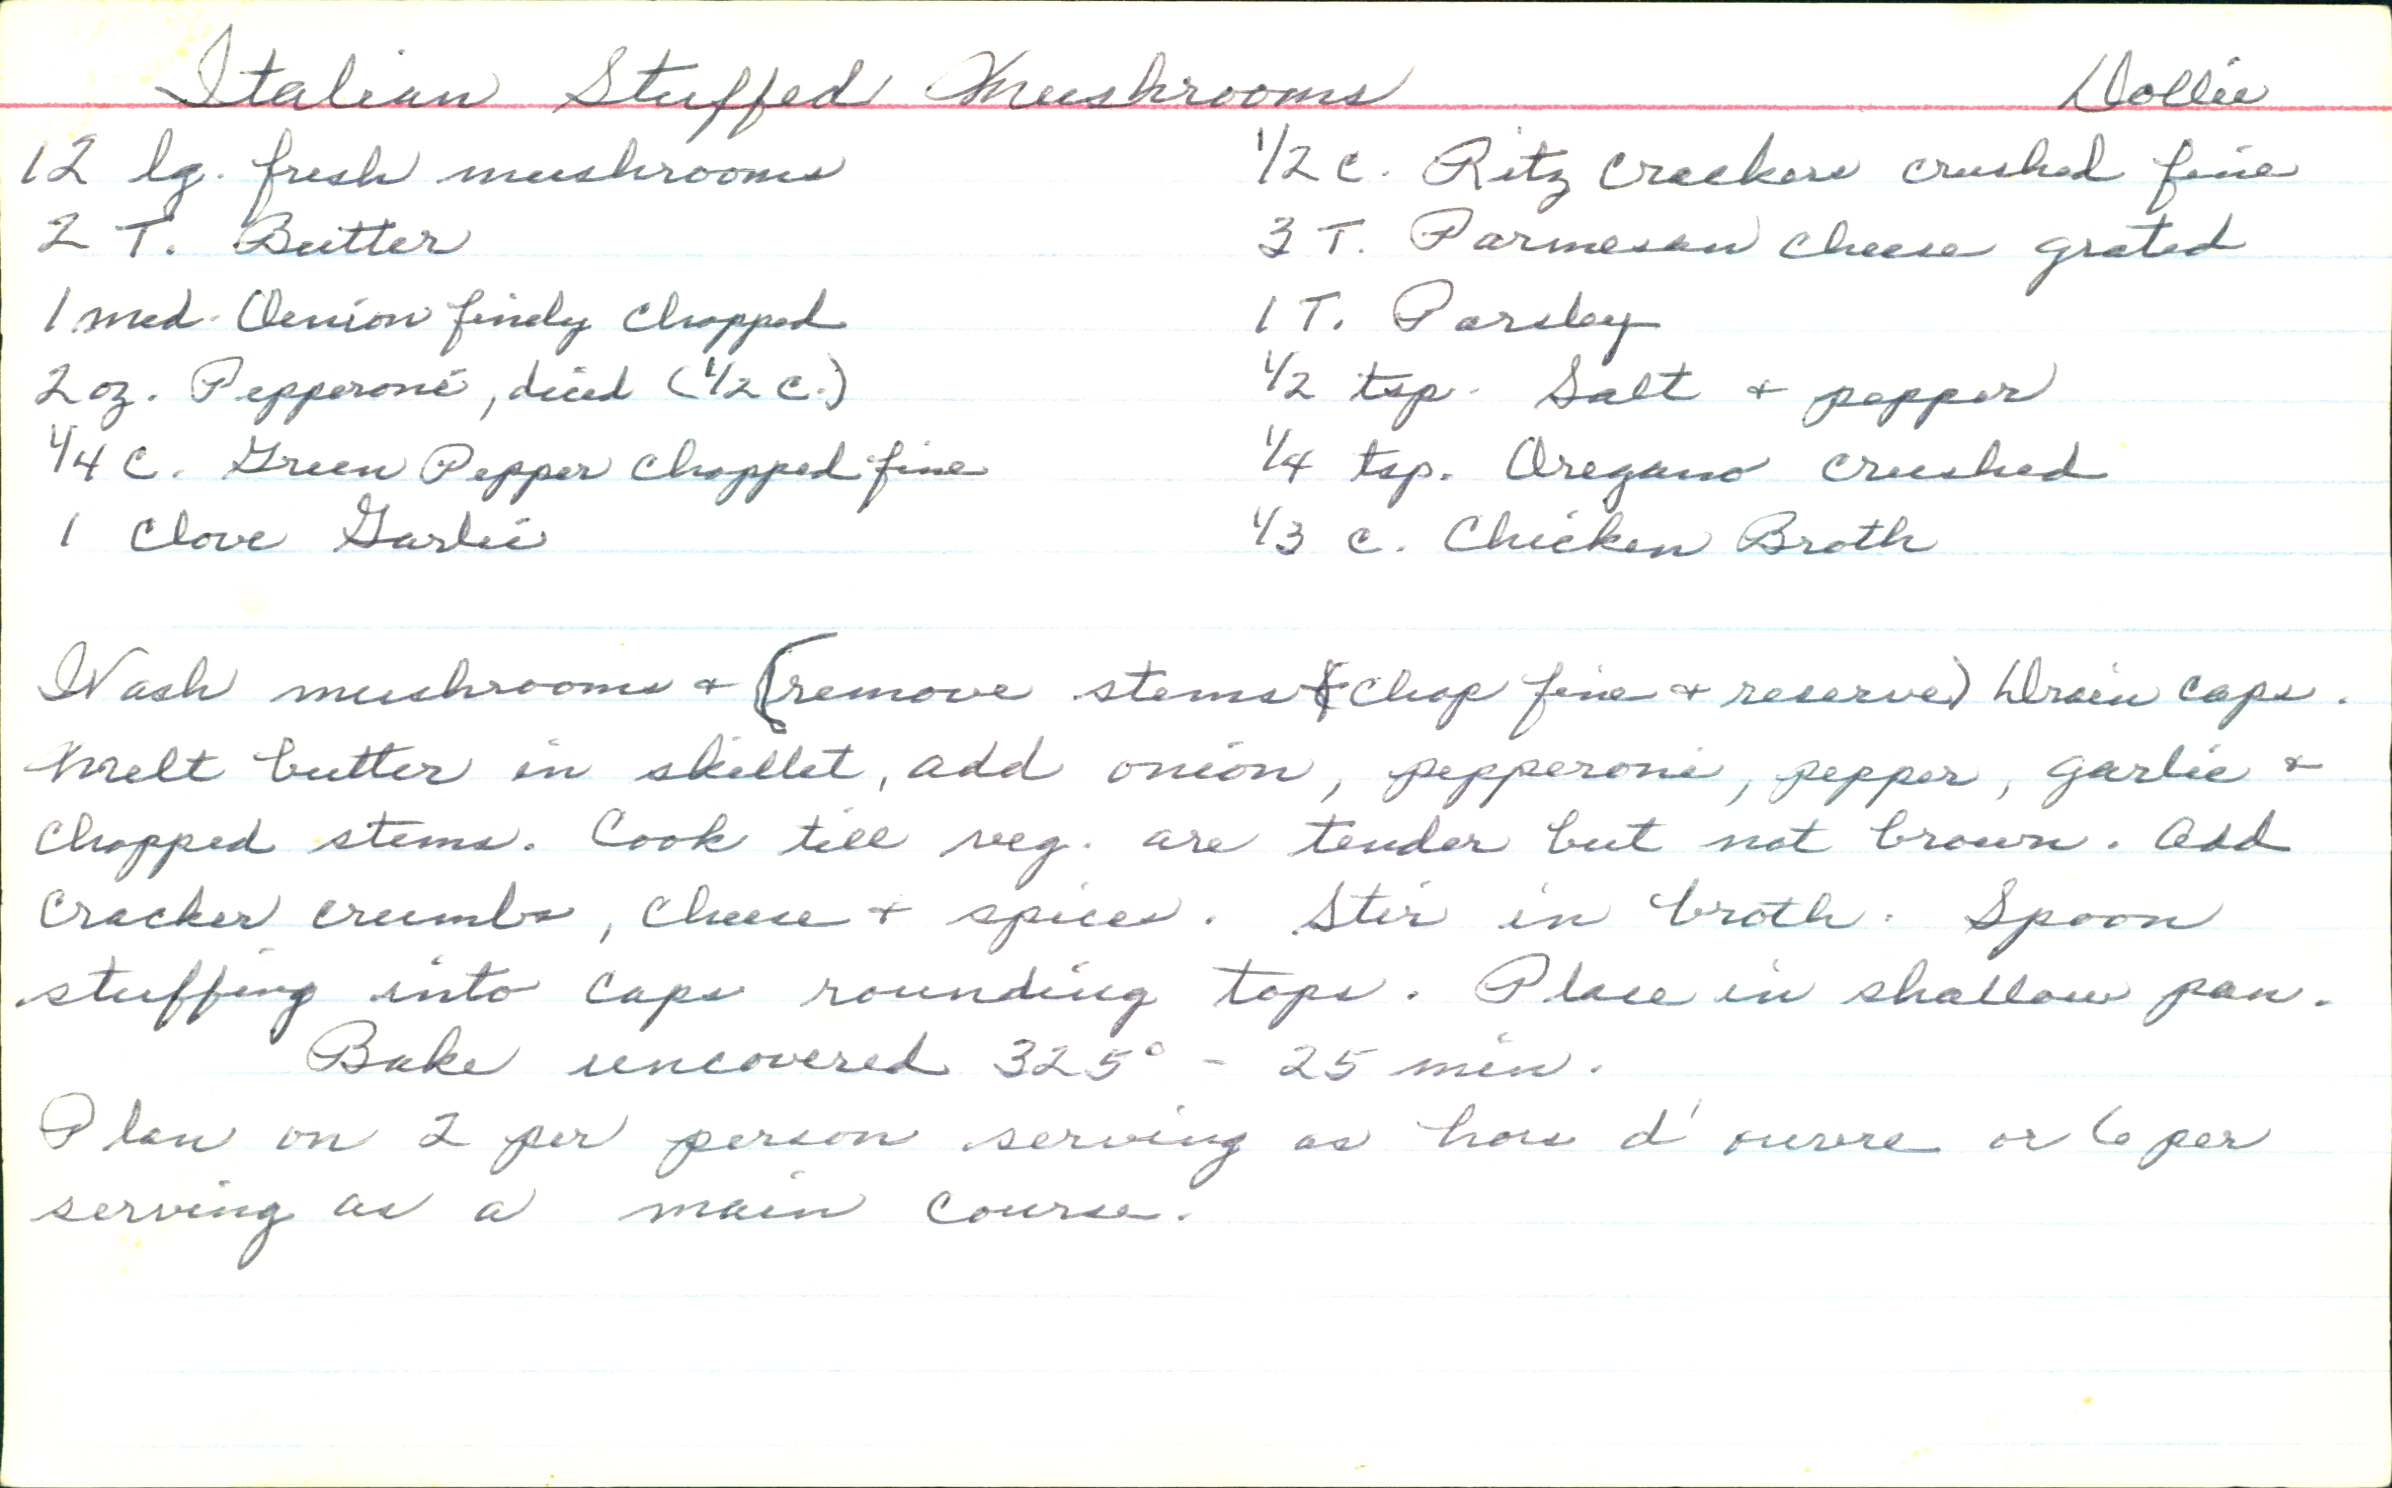 Italian Stuffed Mushrooms Dollie
12 lg. fresh mushrooms
2 T. Butter
1 med. Onion finely chopped
2 oz. Pepperoni, diced (1/2 c.)
1/4 c. Green Pepper chopped fine
1 Clove Garlic
1/2 c. Ritz Crackers crushed fine
3 T. Parmesan cheese grated
1 T. Parsley
1/2 tsp. Salt + pepper
1/4 tsp. Oregano crushed
1/3 c. Chicken Broth
Wash mushrooms + (remove stems & chop fine + reserve) Drain caps.
Melt butter in skillet, add onion, pepperoni, pepper, garlic +
chopped stems. Cook till veg. are tender but not brown. Add
cracker crumbs, cheese + spices. Stir in broth. Spoon
stuffing into caps rounding tops. Place in shallow pan.
Bake uncovered 325° - 25 min.
Plan on 2 per person serving as hors d'ouvre or 6 per
serving as a main course.